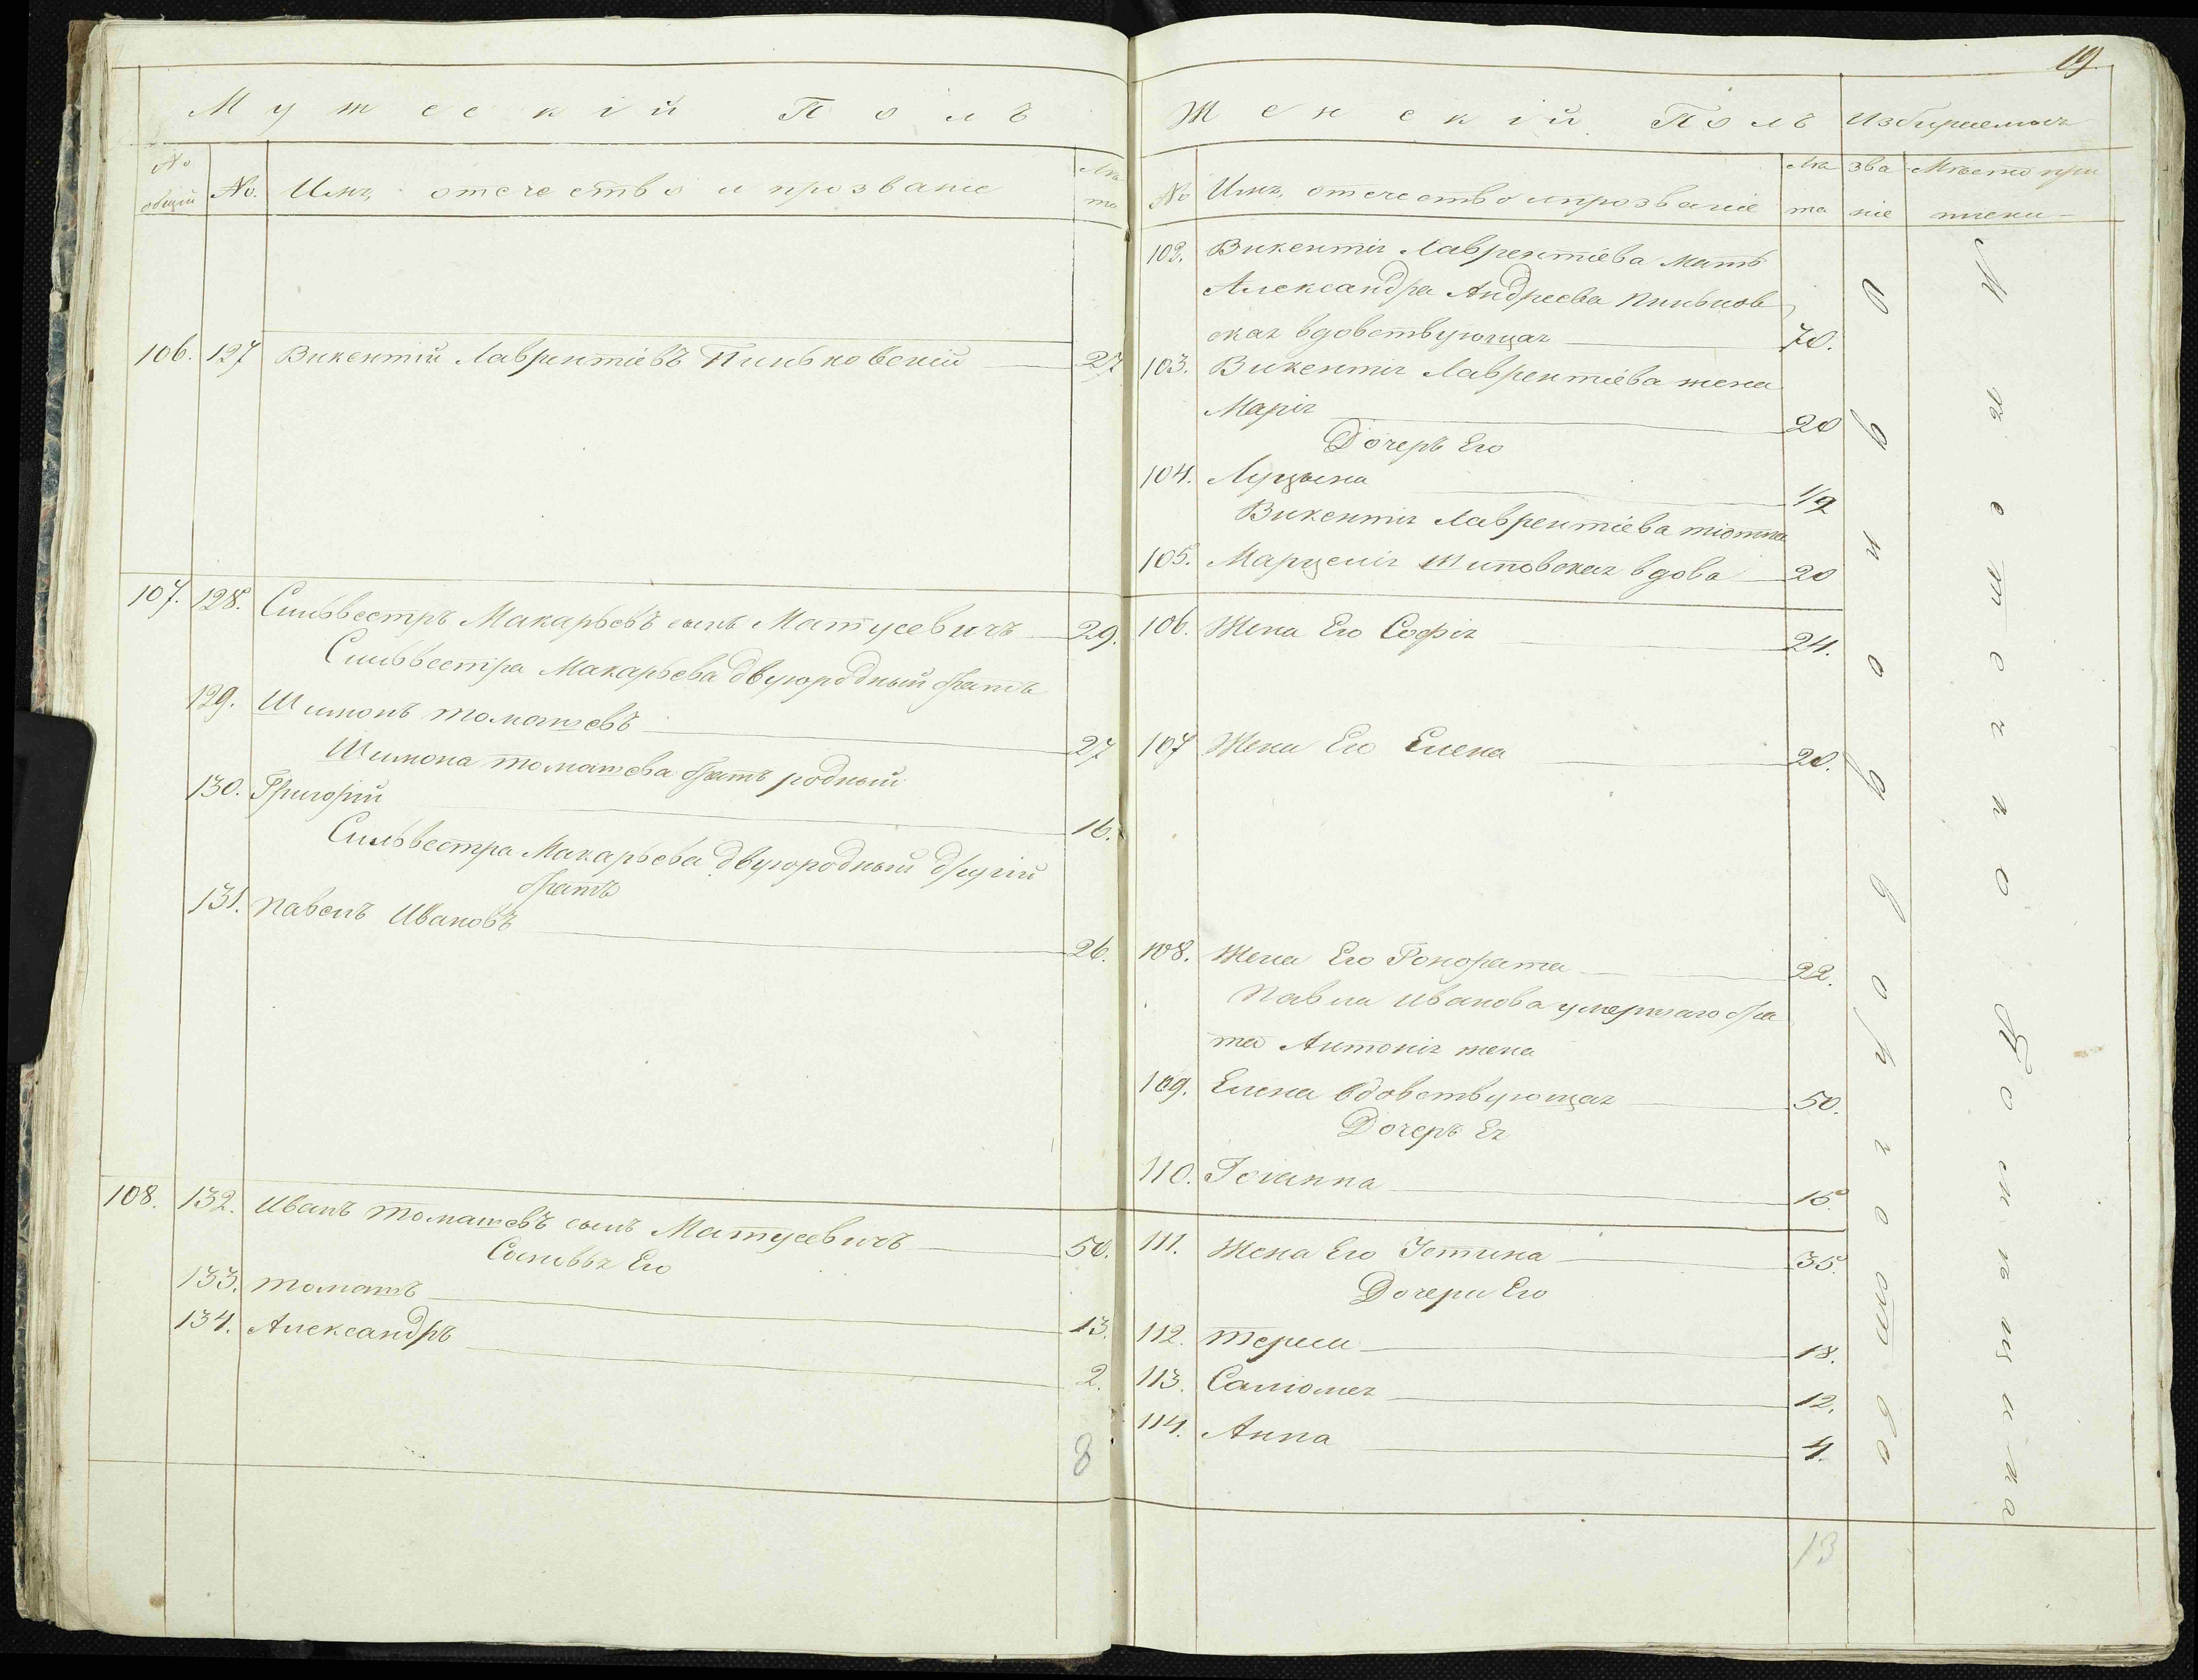 19
Мужескій Полъ
№ общій
№.
Имя, отечество и прозваніе
Лѣта
106. 127 Викентій Лаврентіевъ Пиньковскій 27
107. 128. Сильвестръ Макарьевъ сынъ Матусевичъ 29.
Сильвестра Макарьева двуюродный братъ
129. Шимонъ томашевъ 27
Шимона томашева братъ родный
130. Григорій 16.
Сильвестра Макарьева двуюродный другій
братъ
131. Павелъ Ивановъ 26.
108. 132. Иванъ томашевъ сынъ Матусевичъ 50.
Сыновья Его
133. томашъ 13.
134. Александръ 2.
8
Женскій Полъ
Избираемыя
№
Имя, отечество и прозваніе
Лѣта
званіе
Мѣсто приписки
102. Викентія Лаврентіева мать
Александра Андреева Пиньков
ская вдовствующая 70.
103. Викентія Лаврентіева жена
Марія 20
Дочерь Его
104. Луцына 1/2
Викентія Лаврентіева тіотка
105. Марцелія Шиповская вдова 20
106. Жена Его Софія 24.
107 Жена Его Елена 20.
108. Жена Его Гонората 22.
Павла Иванова умершаго бра
та Антонія жена
109. Елена вдовствующая 50.
Дочерь Ея
110. Іоганна 15.
111. Жена Его Устина 35.
Дочери Его
112. тереса 18.
113. Саліомея 12.
114. Анна 4.
13